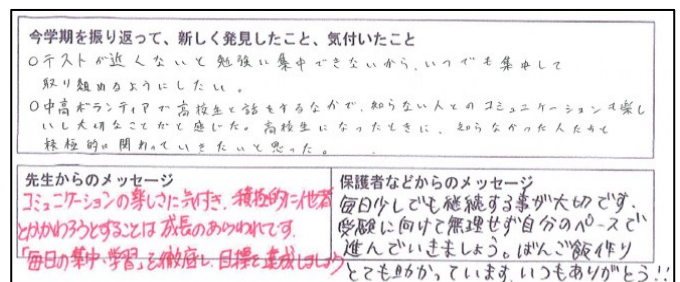 今学期を振り返って、新しく発見したこと、気付いたこと
○テストが近くないと勉強に集中できないから、いつでも集中して
取り組めるようにしたい。
○中高ボランティアで高校生と話をするなかで、知らない人とのコミュニケーションも楽し
いし大切なことだと感じた。高校生になったときに、知らなかった人たちと
積極的に関わっていきたいと思った。
先生からのメッセージ
コミュニケーションの楽しさに気付き、積極的に他者
とかかわろうとすることは成長のあらわれです。
「毎日の集中学習」を徹底し、目標を達成しましょう
保護者などからのメッセージ
毎日少しでも継続する事が大切です。
受験に向けて無理せず自分のペースで
進んでいきましょう。ばんご飯作り
とても助かっています。いつもありがとう!!